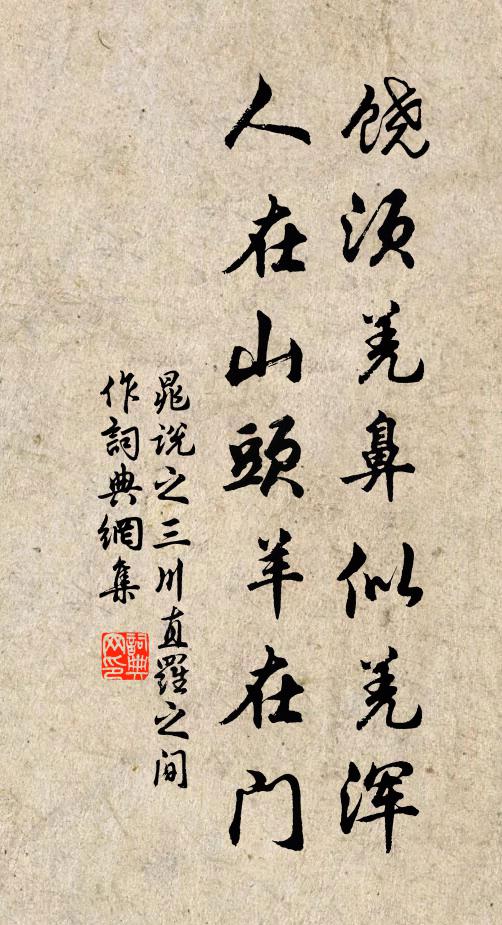 饶须羌鼻似羌浑
人在山頭羊在门
晁说之三川直羅之间
作詞典網集
詞典
网印